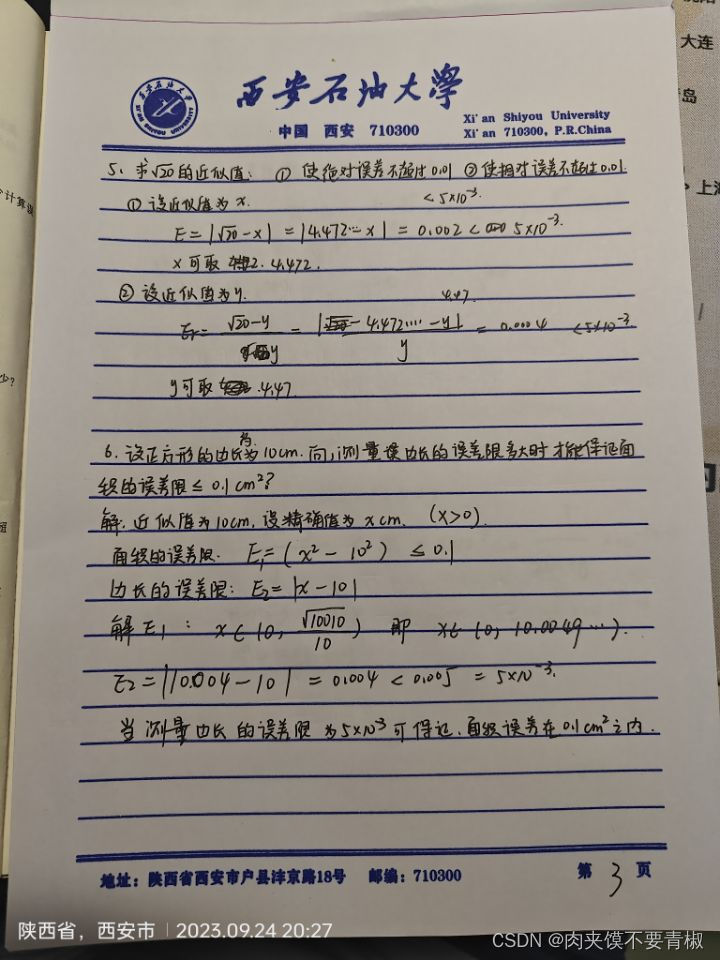 西安石油大学
中国 西安 710300
Xi'an Shiyou University
Xi'an 710300, P.R.China
大连
岛
上海
5. 求√20的近似值: ① 使绝对误差不超过0.01 ② 使相对误差不超过0.01.
① 设近似值为x. <5×10⁻³.
E=|√20-x|=|4.472…-x|=0.002< 5×10⁻³.
x可取 4.472.
② 设近似值为y. 4.47.
Er= √20-y / y = |4.472….-y| / y = 0.0004 <5×10⁻³
y可取 4.47
6. 设正方形的边长为10cm. 问, 测量误边长的误差限多大时才能保证面
积的误差限≤0.1cm²?
解. 近似值为10cm, 设精确值为xcm. (x>0).
面积的误差限. E₁=(x²-10²) ≤0.1
边长的误差限: E₂=|x-10|
解E₁: x∈(0, √10010/10) 即 x∈(0, 10.0049…).
E₂=|10.004-10|=0.004<0.005=5×10⁻³.
当测量边长的误差限为5×10⁻³可保证. 面积误差在0.1cm²之内.
地址: 陕西省西安市户县沣京路18号 邮编: 710300
第 3 页
陕西省, 西安市 | 2023.09.24 20:27
CSDN @肉夹馍不要青椒